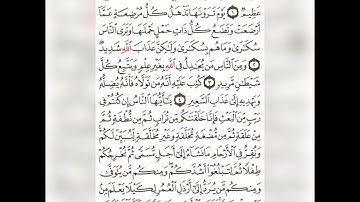 عَظِيمٌ ١ يَوْمَ تَرَوْنَهَا تَذْهَلُ كُلُّ مُرْضِعَةٍ عَمَّآ
أَرْضَعَتْ وَتَضَعُ كُلُّ ذَاتِ حَمْلٍ حَمْلَهَا وَتَرَى ٱلنَّاسَ
سُكَٰرَىٰ وَمَا هُم بِسُكَٰرَىٰ وَلَٰكِنَّ عَذَابَ ٱللَّهِ شَدِيدٌ
٢ وَمِنَ ٱلنَّاسِ مَن يُجَٰدِلُ فِي ٱللَّهِ بِغَيْرِ عِلْمٍ وَيَتَّبِعُ كُلَّ
شَيْطَٰنٍ مَّرِيدٍ ٣ كُتِبَ عَلَيْهِ أَنَّهُۥ مَن تَوَلَّاهُ فَأَنَّهُۥ يُضِلُّهُۥ
وَيَهْدِيهِ إِلَىٰ عَذَابِ ٱلسَّعِيرِ ٤ يَٰٓأَيُّهَا ٱلنَّاسُ إِن كُنتُمْ فِي
رَيْبٍ مِّنَ ٱلْبَعْثِ فَإِنَّا خَلَقْنَٰكُم مِّن تُرَابٍ ثُمَّ مِن نُّطْفَةٍ ثُمَّ
مِنْ عَلَقَةٍ ثُمَّ مِن مُّضْغَةٍ مُّخَلَّقَةٍ وَغَيْرِ مُخَلَّقَةٍ لِّنُبَيِّنَ لَكُمْ
وَنُقِرُّ فِي ٱلْأَرْحَامِ مَا نَشَآءُ إِلَىٰٓ أَجَلٍ مُّسَمًّى ثُمَّ نُخْرِجُكُمْ
طِفْلًا ثُمَّ لِتَبْلُغُوٓا۟ أَشُدَّكُمْ وَمِنكُم مَّن يُتَوَفَّىٰ
وَمِنكُم مَّن يُرَدُّ إِلَىٰٓ أَرْذَلِ ٱلْعُمُرِ لِكَيْلَا يَعْلَمَ مِنۢ